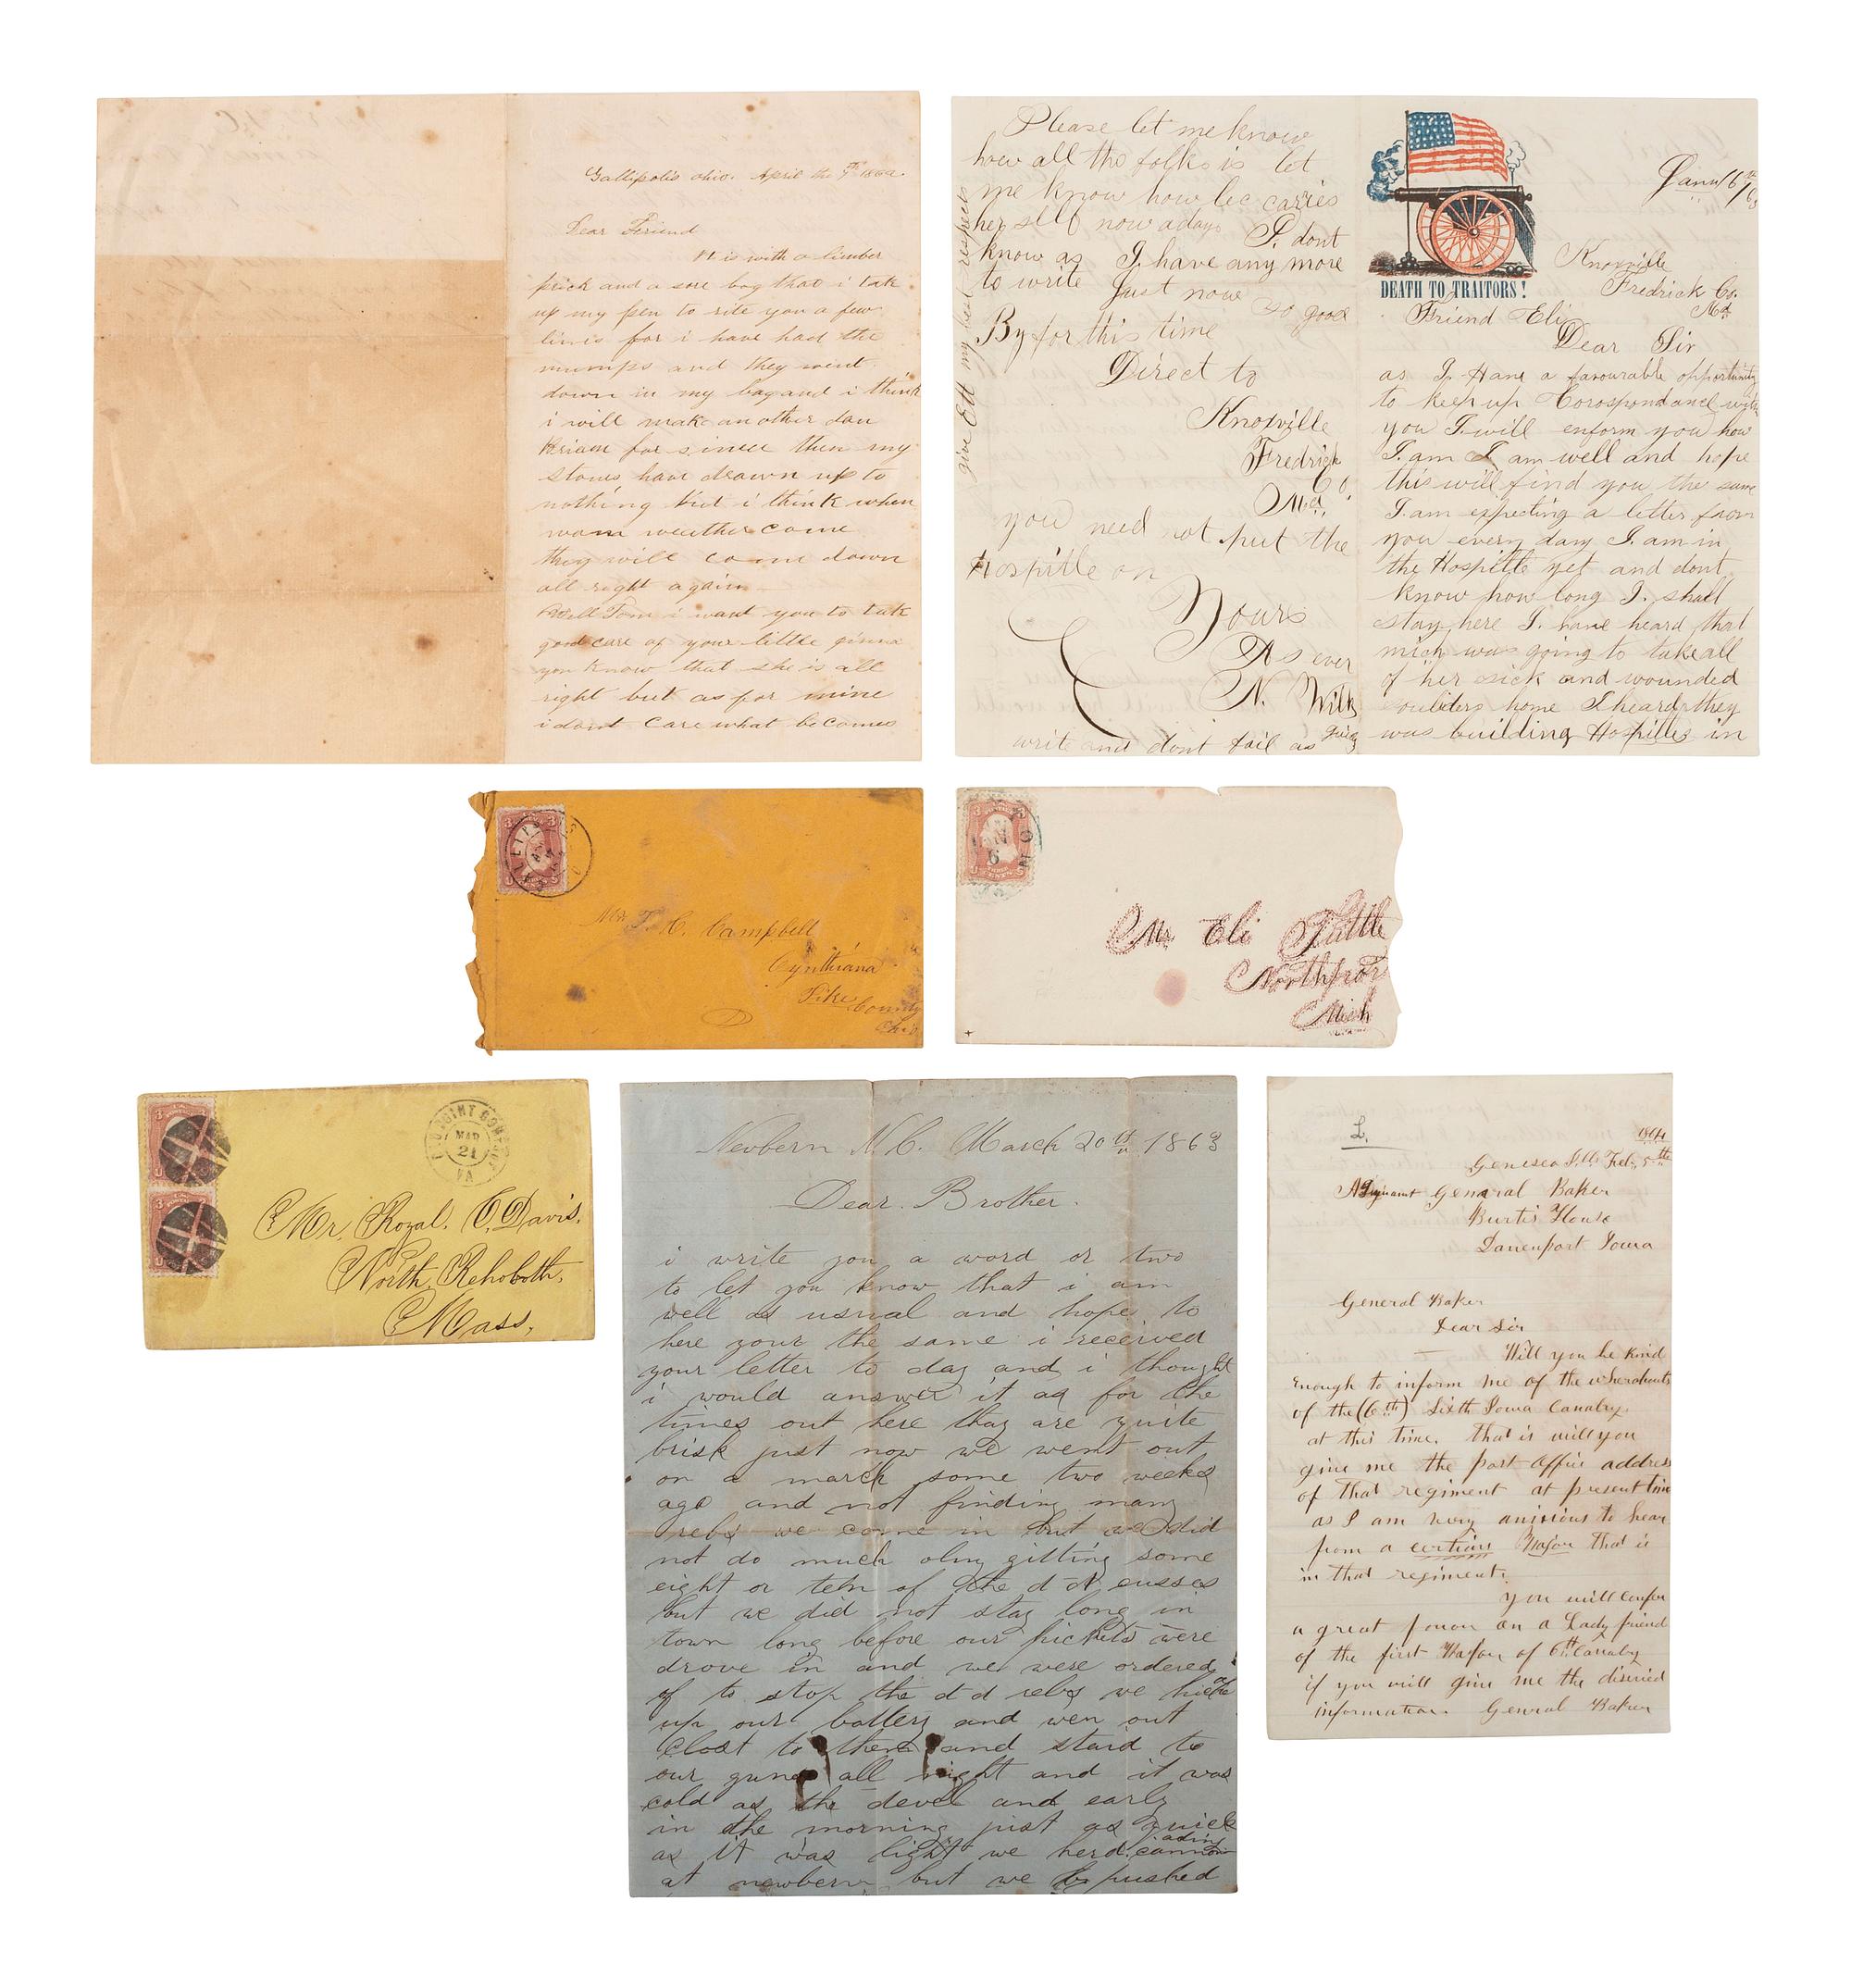 Gallipolis ohio. April the 9th 1864.
Dear Friend
It is with a limber
prick and a sore bag that i take
up my pen to rite you a few
lines for i have had the
mumps and they went
down in my bag and i think
i will make an other dan
for since then my
stones have drawn up to
nothing but i think when
warm weather come
they will come down
all right again
Well Tom i want you to take
good care of your little
you know that she is all
right but as for mine
i dont care what becomes
Please let me know
how all the folks is let
me know how lec caries
her self now adays I dont
know as I have any more
to write just now so good
By for this time
Direct to
Knoxville
Fredrick
Co.
Md.
you need not put the
Hospitle on
Yours
As ever
N. Wilks
write and dont fail as
give Ett my best respects
Jany 16th /63
DEATH TO TRAITORS!
Knoxville
Fredrick Co.
Md.
Friend Eli
Dear Sir
as I Have a favourable opportunity
to keep up Corospondancel with
you I will enform you how
I am I am well and hope
this will find you the same
I am expecting a letter from
you every day I am in
the Hospitle yet and dont
know how long I shall
stay here I have heard that
mich was going to take all
of her sick and wounded
souliders home I heard they
was building Hospitles in
Mr T. C. Campbell
Cynthiana
Pike County
Ohio
Mr Eli Tuttle
Northport
Mich
OLD POINT COMFORT
MAR
21
VA
Mr. Royal. C. Davis.
North Rehoboth.
Mass.
Newbern N.C. March 20th 1863
Dear. Brother.
i write you a word or two
to let you know that i am
well as usual and hope to
here your the same i received
your letter to day and i thought
i would answer it as for the
times out here thay are quite
brisk just now we went out
on a march some two weeks
ago and not finding many
rebs we come in but we did
not do much olny gitting some
eight or tehn of the d d cusses
but we did not stay long in
town long before our pickets were
drove in and we were ordered
of to stop the d d rebs we
up our battery and wen out
clost to them and staid to
our guns all night and it was
cold as the devel and early
in the morning just as quick
as it was light we herd cannonading
at newbern but we pushed
L.
1864
Geneseo Ills Feb, 5th
Adjutant General Baker
Burtis House
Davenport Iowa
General Baker
Dear Sir
Will you be kind
enough to inform me of the wherabouts
of the (6th) Sixth Iowa Cavalry.
at this time. that is will you
give me the post office address
of that regiment at present time
as I am very anixious to hear
from a certian Major that is
in that regiment.
you will confer
a great favor on a Lady friend
of the first Major of 6th Cavalry
if you will give me the disired
information. Genral Baker